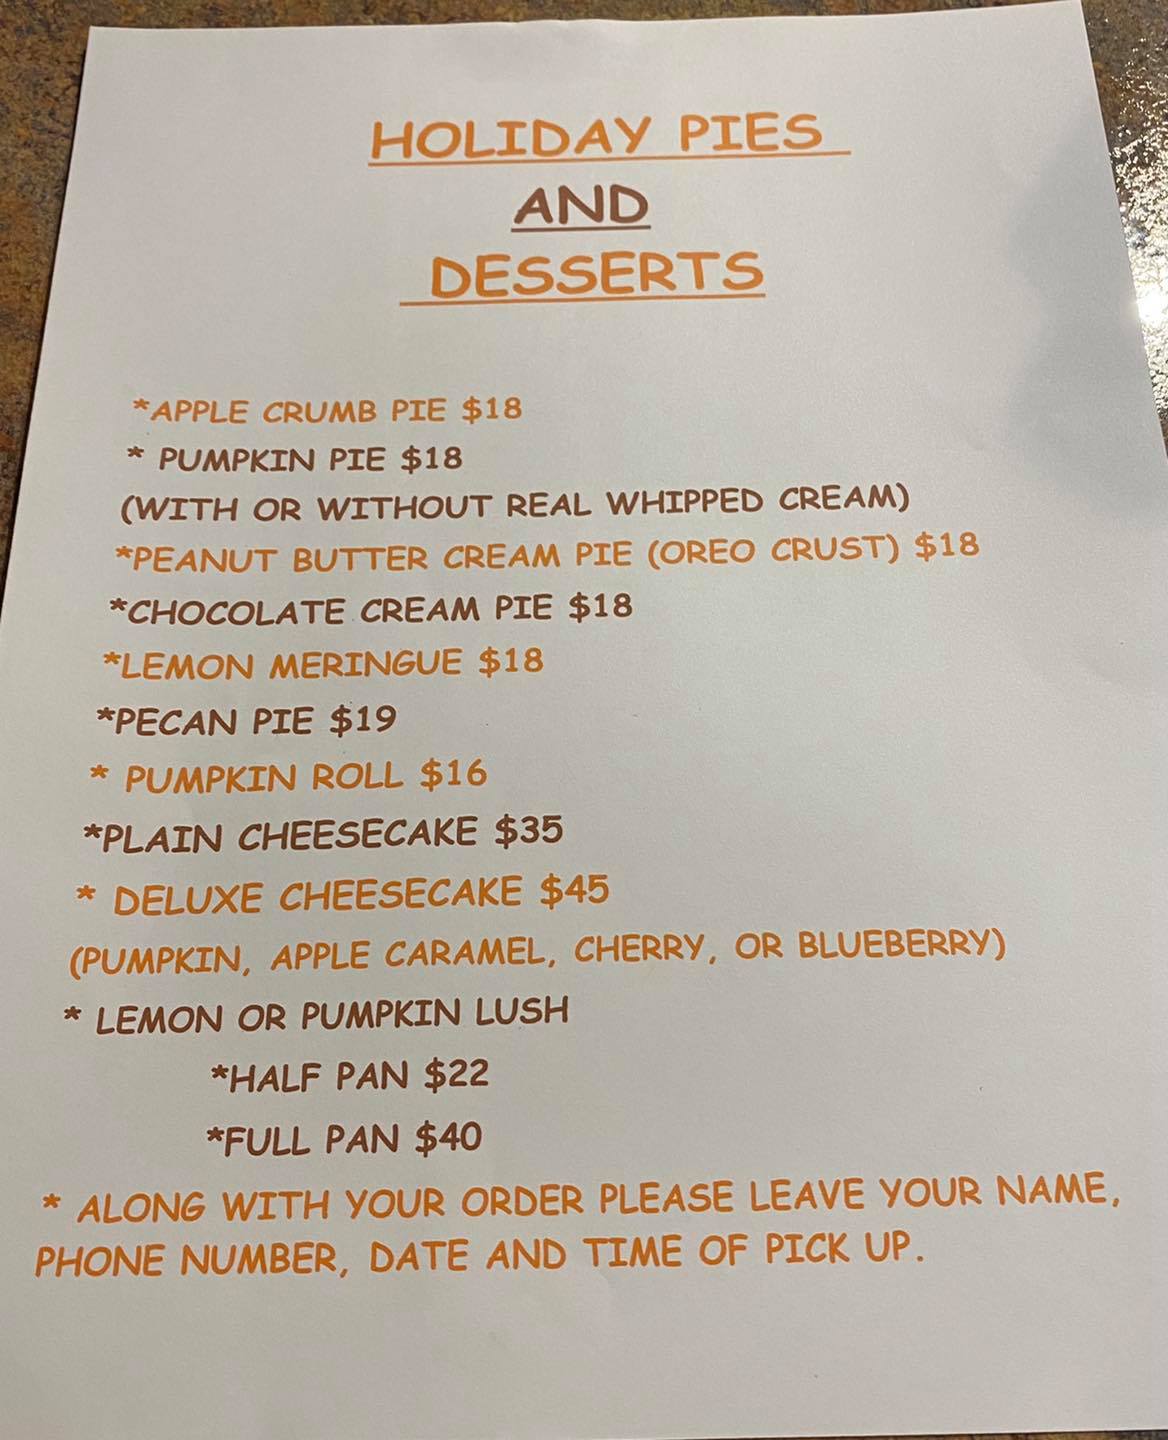 HOLIDAY PIES
AND
DESSERTS
*APPLE CRUMB PIE $18
* PUMPKIN PIE $18
(WITH OR WITHOUT REAL WHIPPED CREAM)
*PEANUT BUTTER CREAM PIE (OREO CRUST) $18
*CHOCOLATE CREAM PIE $18
*LEMON MERINGUE $18
*PECAN PIE $19
* PUMPKIN ROLL $16
*PLAIN CHEESECAKE $35
* DELUXE CHEESECAKE $45
(PUMPKIN, APPLE CARAMEL, CHERRY, OR BLUEBERRY)
* LEMON OR PUMPKIN LUSH
*HALF PAN $22
*FULL PAN $40
* ALONG WITH YOUR ORDER PLEASE LEAVE YOUR NAME,
PHONE NUMBER, DATE AND TIME OF PICK UP.